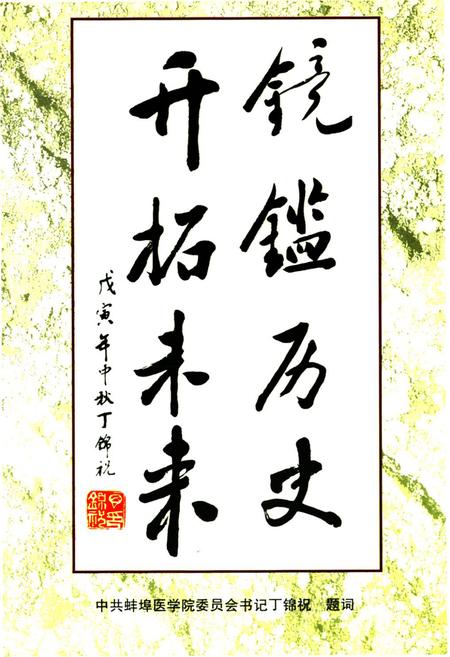 镜鑑历史
开拓未来
戊寅年中秋丁锦祝
中共蚌埠医学院委员会书记丁锦祝　题词